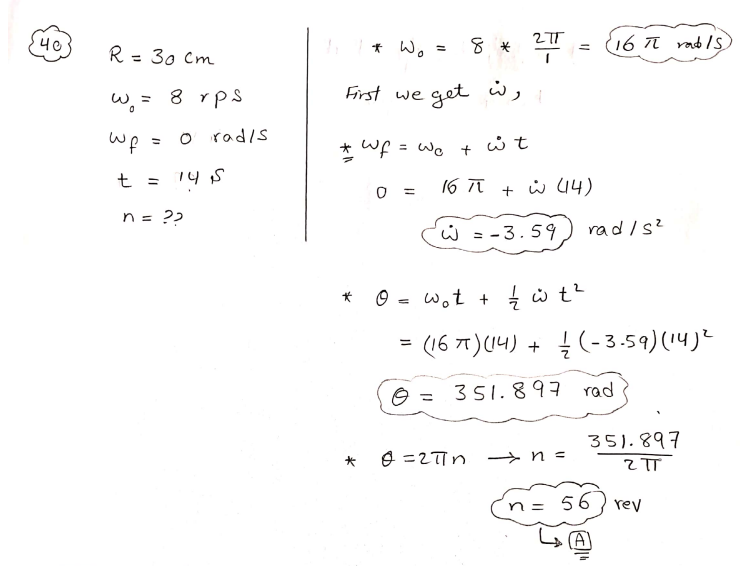 40
R = 30 cm
ω₀ = 8 rps
ωf = 0 rad/s
t = 14 s
n = ??
* ω₀ = 8 * 2π/1 = 16 π rad/s
First we get ω̇,
* ωf = ω₀ + ω̇ t
0 = 16 π + ω̇ (14)
ω̇ = -3.59 rad/s²
* θ = ω₀t + 1/2 ω̇ t²
= (16 π)(14) + 1/2 (-3.59)(14)²
θ = 351.897 rad
* θ = 2πn → n = 351.897/2π
n = 56 rev
↳ A